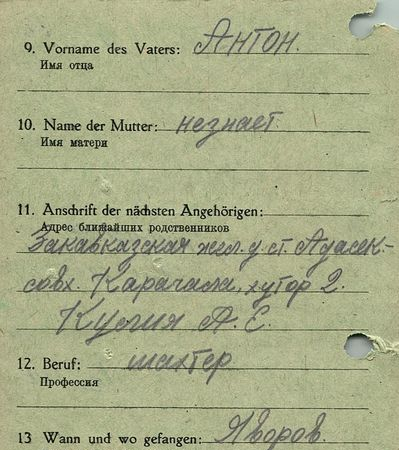 9. Vorname des Vaters: Антон.
Имя отца
10. Name der Mutter: незнает
Имя матери
11. Anschrift der nächsten Angehörigen:
Адрес ближайших родственников
Закавказская жел. д. ст. Адасек-
совх. Карачала, хутор 2.
А. Е.
12. Beruf: шахтер
Профессия
13 Wann und wo gefangen: Яворов.